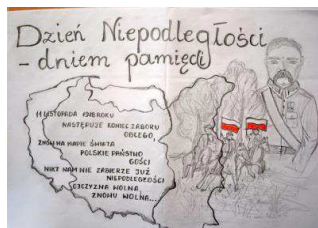 Dzień Niepodległości
- dniem pamięci
11 LISTOPADA 1918 ROKU
NASTĘPUJE KONIEC ZABORU
OBCEGO.
ZNÓW NA MAPIE ŚWIATA
POLSKIE PAŃSTWO
GOŚCI
NIKT NAM NIE ZABIERZE JUŻ
NIEPODLEGŁOŚCI
OJCZYZNA WOLNA,
ZNOWU WOLNA...